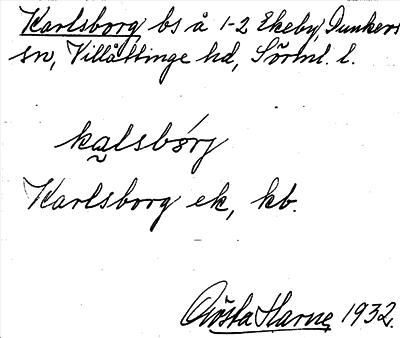 Karlsborg bs å 1-2 Ekeby, Dunkers
sn, Villåttinge hd, Sörml. l.
kalsbórj
Karlsborg ek, kb.
Gösta Harne 1932.